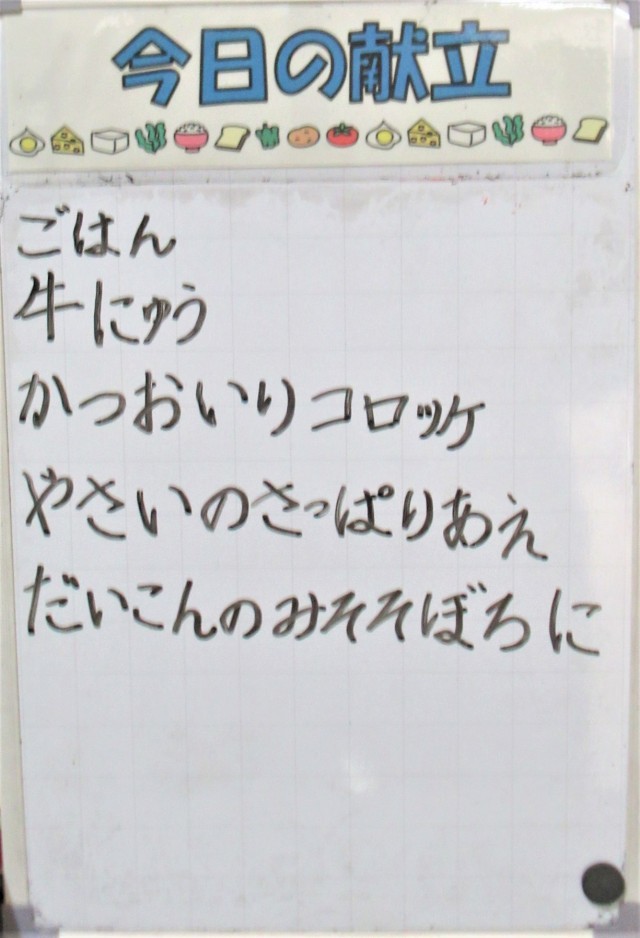 今日の献立
ごはん
牛にゅう
かつおいりコロッケ
やさいのさっぱりあえ
だいこんのみそそぼろに